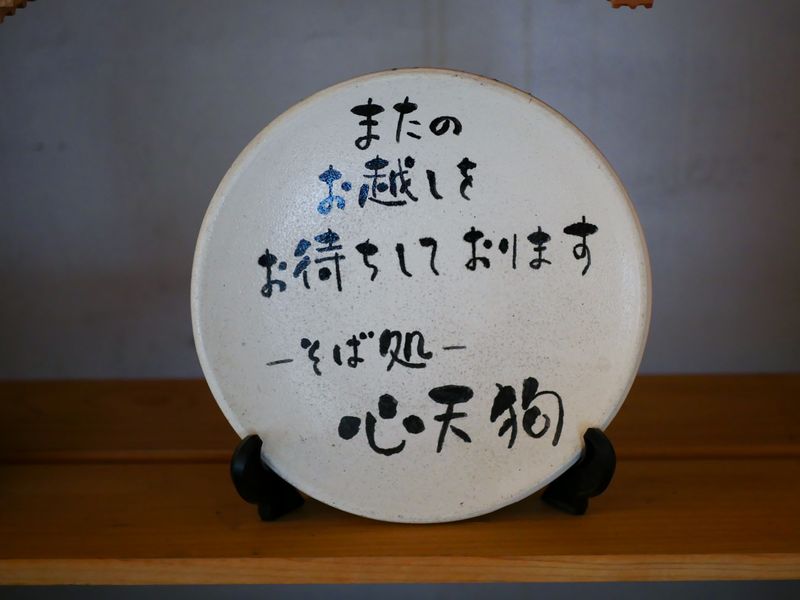 またの
お越しを
お待ちしております
－そば処－
心天狗